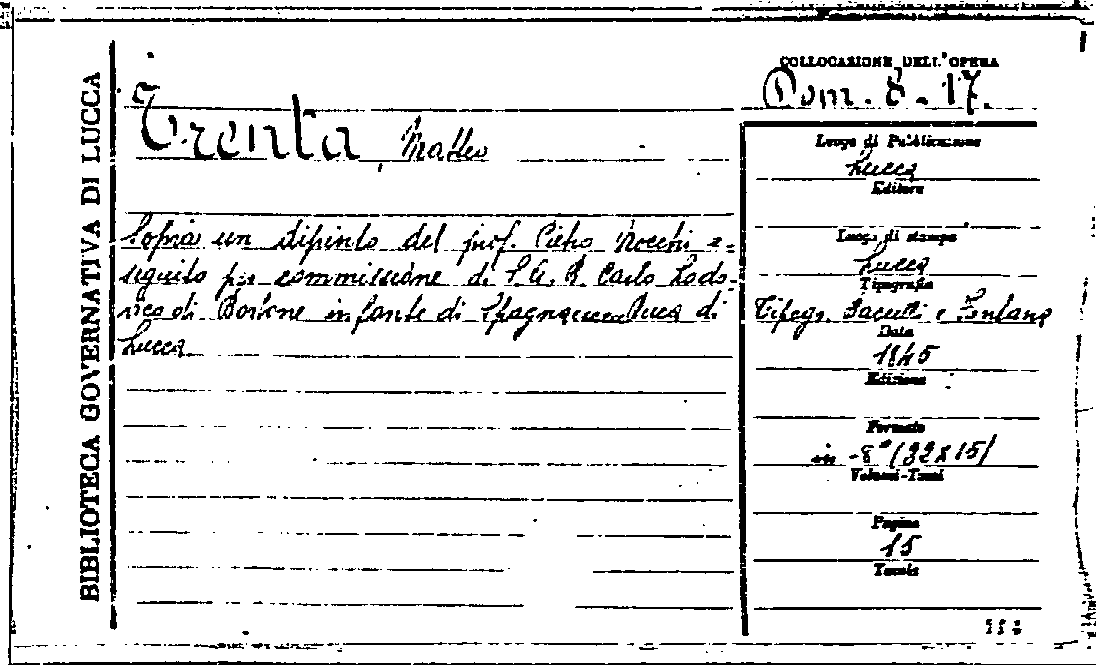 BIBLIOTECA GOVERNATIVA DI LUCCA
COLLOCAZIONE DELL'OPERA
Dom. 8. 17.
Trenta, Matteo
Sopra un dipinto del prof. Pietro Nocchi e=
seguito per commissione di S. A. R. Carlo Lodo=
vico di Borbone infante di Spagna Duca di
Lucca
Luogo di Pubblicazione
Lucca
Editore
Luogo di stampa
Lucca
Tipografia
Tipogr. e Fontana
Data
1845
Edizione
Formato
in -8° (22X15)
Volumi-Tomi
Pagine
15
Tavole